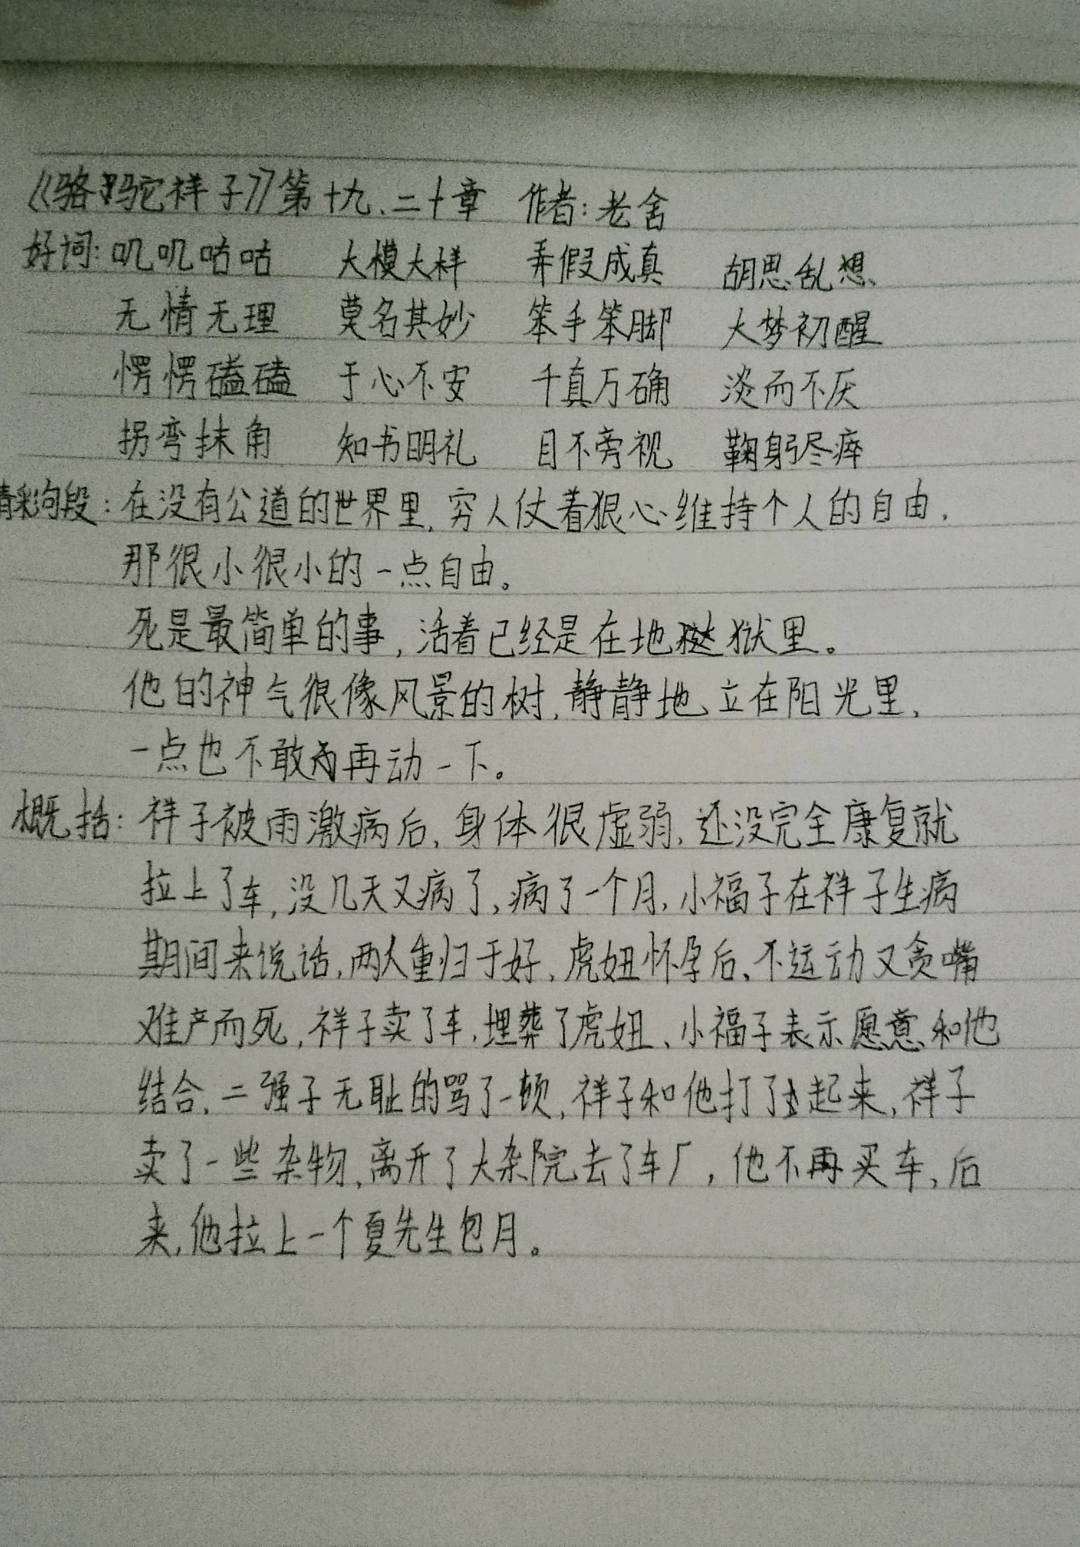 《骆驼祥子》第十九、二十章 作者:老舍
好词:叽叽咕咕 大模大样 弄假成真 胡思乱想
无情无理 莫名其妙 笨手笨脚 大梦初醒
愣愣磕磕 于心不安 千真万确 淡而不厌
拐弯抹角 知书明礼 目不旁视 鞠躬尽瘁
精彩句段:在没有公道的世界里,穷人仗着狠心维持个人的自由,
那很小很小的一点自由。
死是最简单的事,活着已经是在地狱里。
他的神气很像风景的树,静静地立在阳光里,
一点也不敢再动一下。
概括:祥子被雨激病后,身体很虚弱,还没完全康复就
拉上了车,没几天又病了,病了一个月,小福子在祥子生病
期间来说话,两人重归于好,虎妞怀孕后,不运动又贪嘴
难产而死,祥子卖了车,埋葬了虎妞、小福子表示愿意和他
结合,二强子无耻的骂了一顿,祥子和他打了起来,祥子
卖了一些杂物,离开了大杂院去了车厂,他不再买车,后
来,他拉上一个夏先生包月。